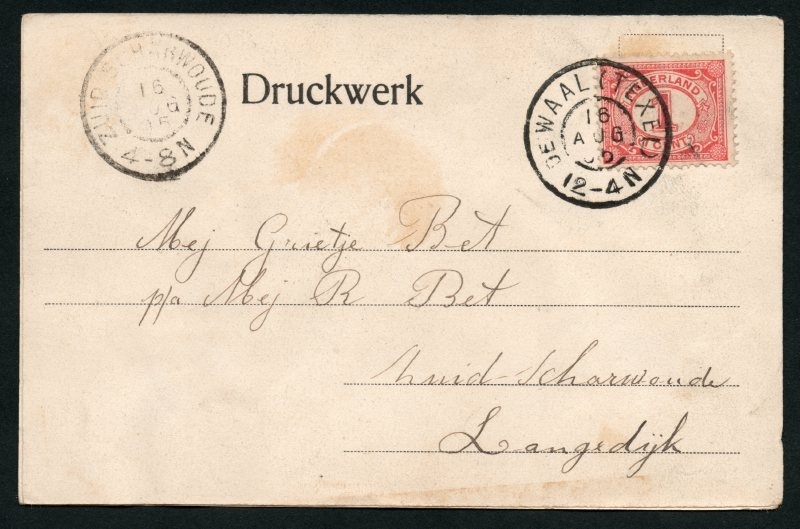 ZUID SCHARWOUDE
16
4-8N
Druckwerk
DE WAAL (TEXEL)
16
AUG
12-4N
NEDERLAND
CENT
Mej Grietje Bet
p/a Mej R Bet
Zuid-Scharwoude
Langedijk